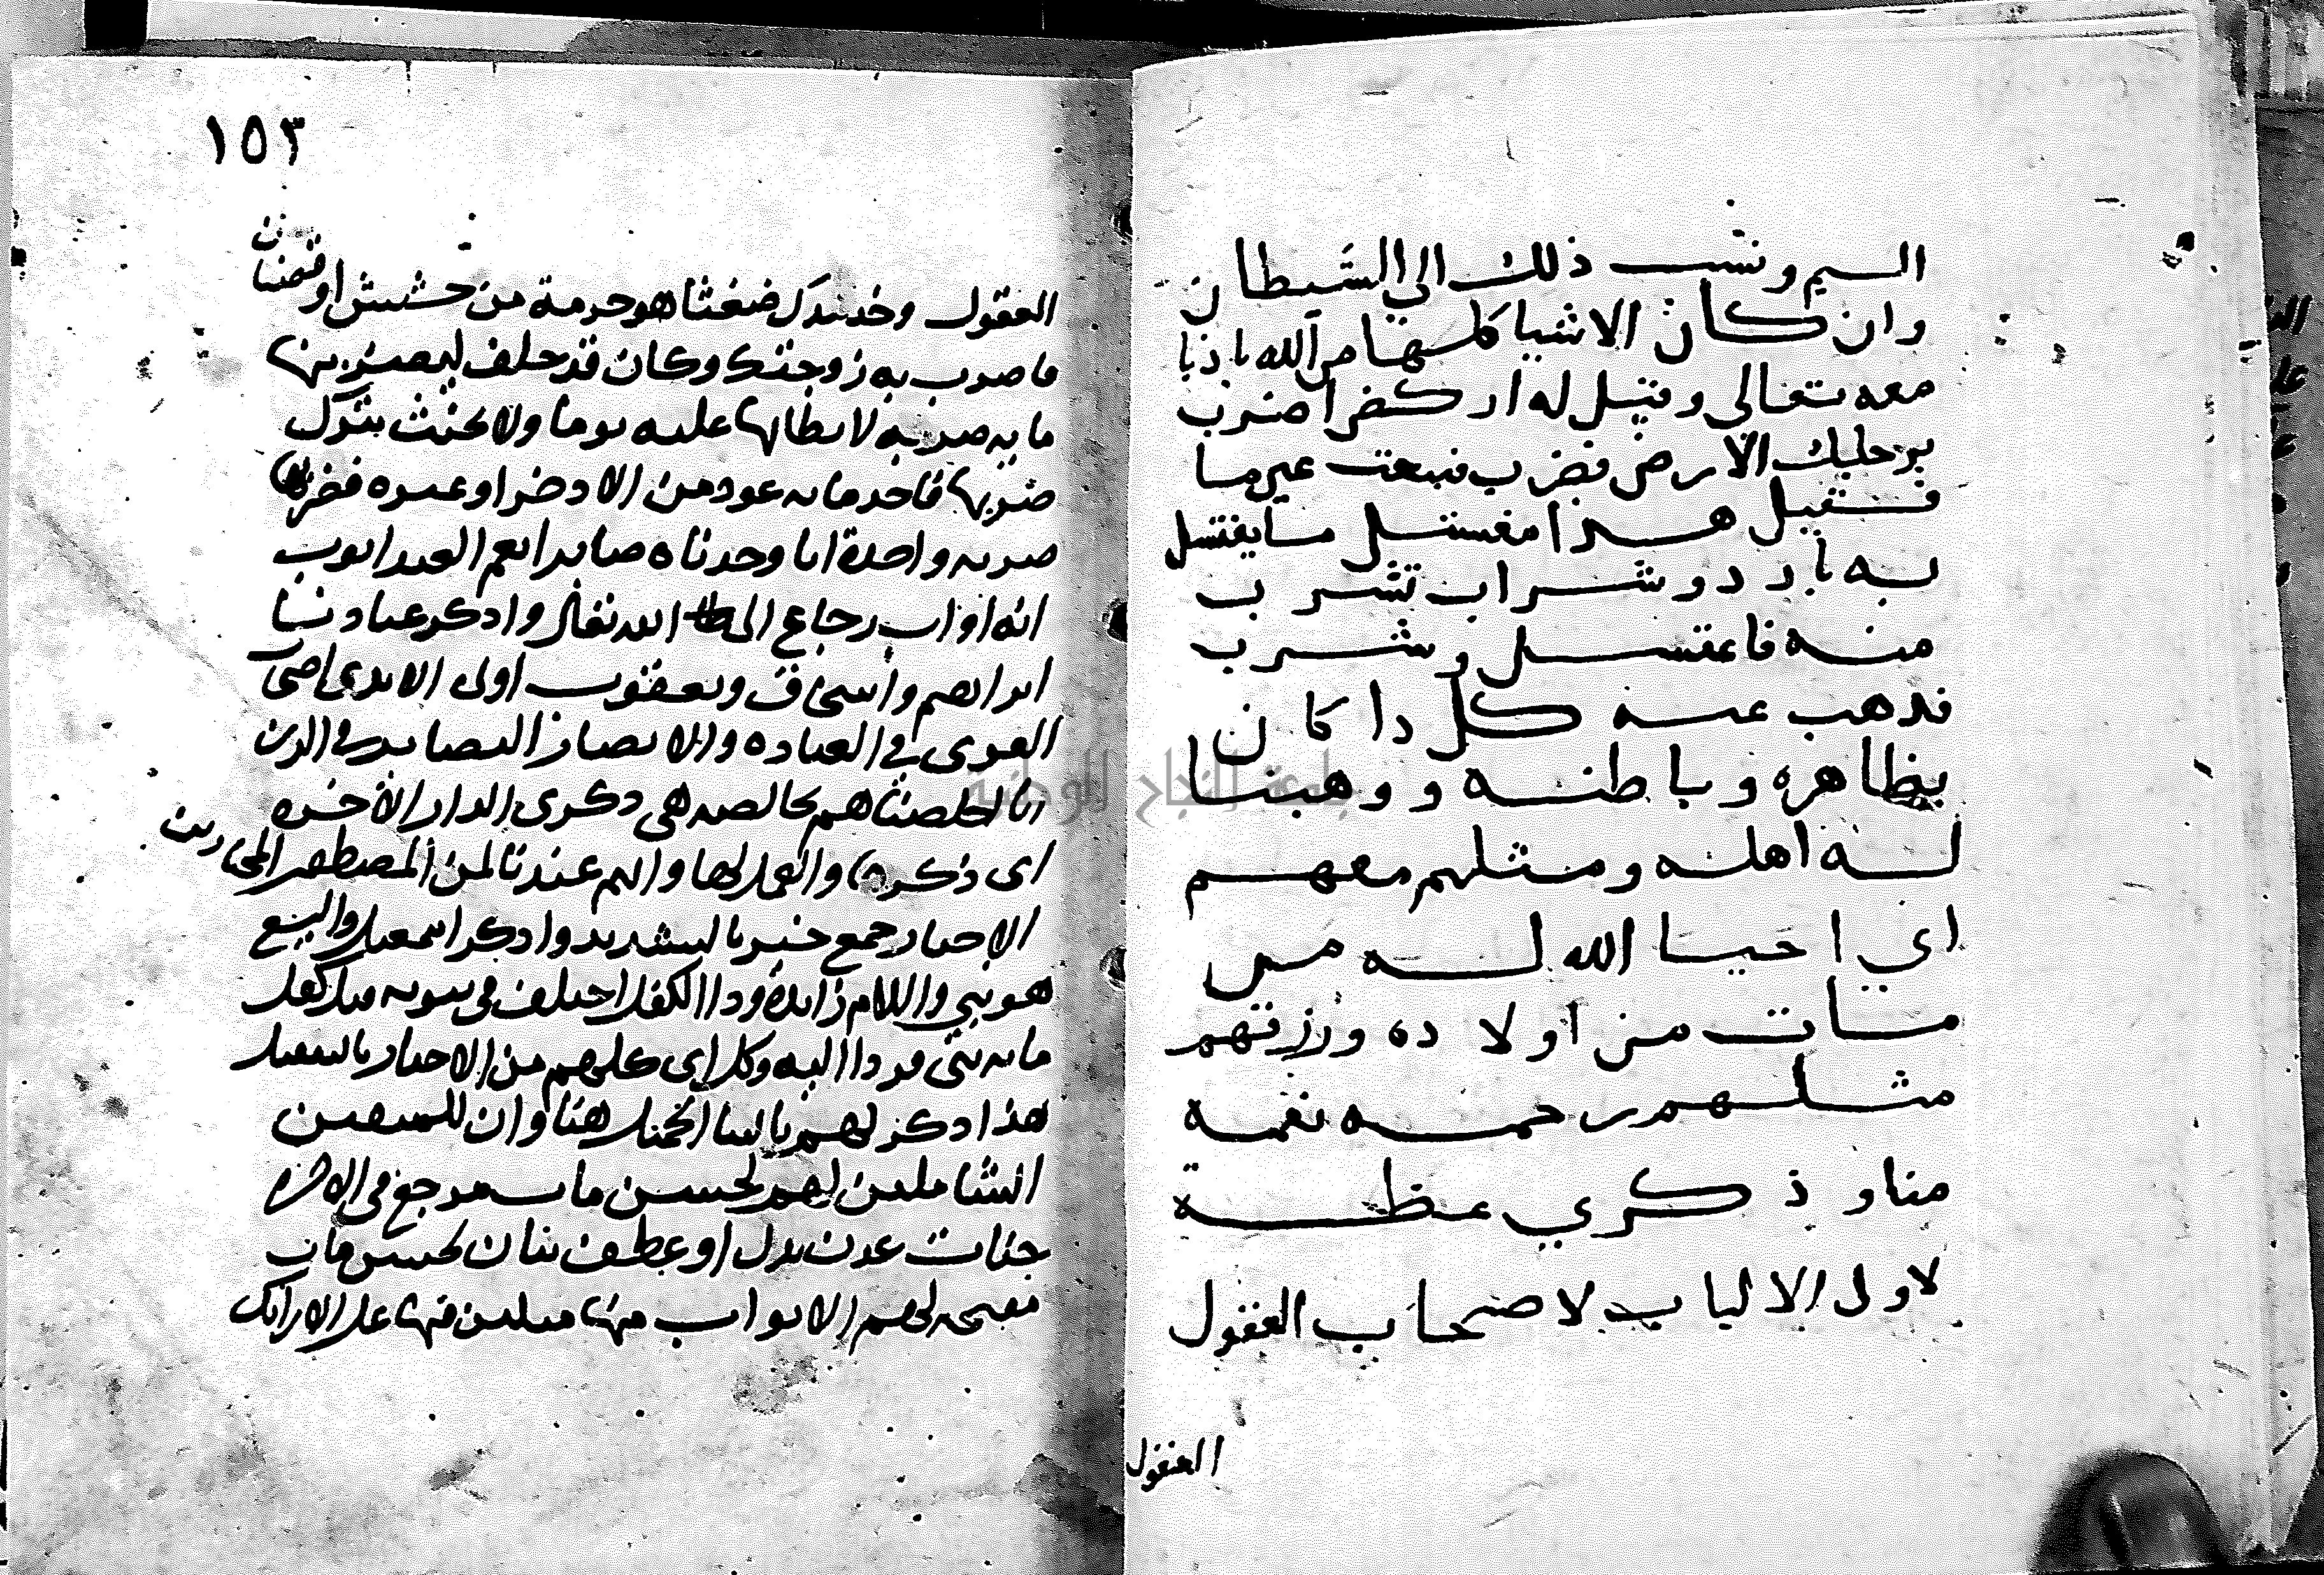 اليم ونسب ذلك الي الشيطان
وان كان الاشيا كلها من الله تادبا
معه تعالى وقيل له اركض اضرب
برجلك الارض فضرب فنبعت عين ما
فقيل هذا مغتسل ما يغتسل
به بارد وشراب تشرب
منه فاغتسل وشرب
فذهب عنه كل دا كان
بظاهره وباطنه ووهبنا
له اهله ومثلهم معهم
اي احيا الله له من
مات من اولاده ورزقهم
مثلهم رحمه نعمه
منا وذكري عظة
لاولى الالباب لاصحاب العقول
العقول
١٥٣
العقول وخذ بيدك ضغثا هو حزمة من حشيش او قضبان
فاضرب به زوجتك وكان قد حلف ليضربنها
مايه ضربه لابطائها عليه يوما ولا تحنث بترك
ضربها فاخذ مايه عود من الاذخر او غيره فضربها
ضربه واحدة انا وجدناه صابرا نعم العبد ايوب
انه اواب رجاع الى الله تعالى واذكر عبادنا
ابراهيم واسحاق ويعقوب اولى الايدى اصحاب
القوى في العباده والابصار البصاير في الدين
انا اخلصناهم بخالصه هى ذكرى الدار الاخره
اى ذكرها والعمل لها وانهم عندنا لمن المصطفين المختارين
الاخيار جمع خير بالتشديد واذكر اسمعيل واليسع
هو نبي واللام زايدة وذا الكفل اختلف في نبوته قيل كفل
مايه نبى فروا اليه وكل اى كلهم من الاخيار بالتثقيل
هذا ذكر لهم بالثنا الجميل هنا وان للمتقين
الشاملين لهم لحسن ماب مرجع في الاخره
جنات عدن بدل او عطف بيان لحسن ماب
مفتحه لهم الابواب منها متكين فيها على الارائك